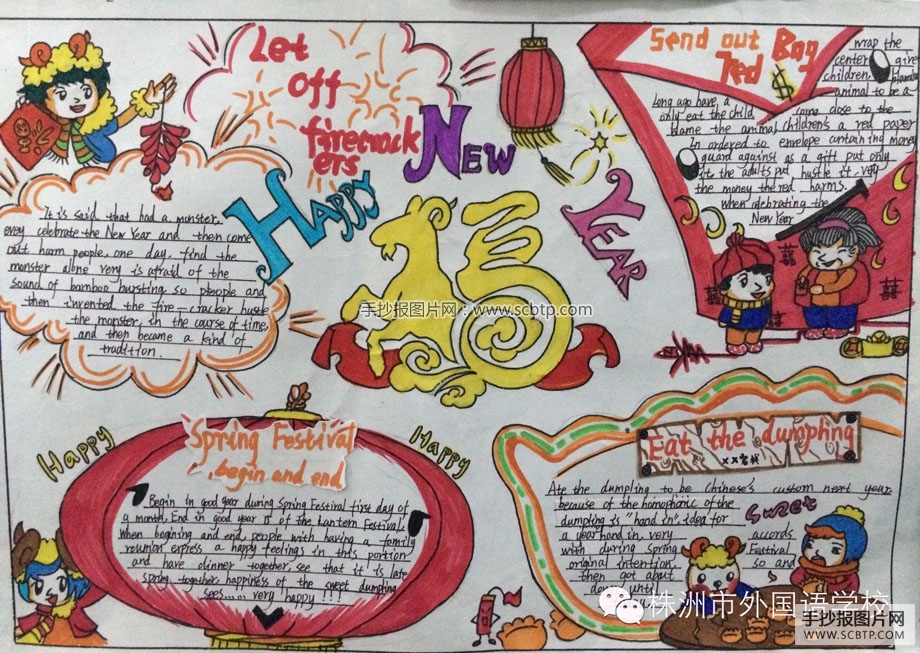 Let
off
firecrack
ers
Happy
New
Year
福
手抄报图片网:www.scbtp.com
It is said that had a monster.
every celebrate the New Year and then come
out harm people, one day, find the
monster alone very is afraid of the
sound of bamboo bursting so people and
then invented the fire-cracker hustle
the monster, in the course of time,
and then became a kind of
tradition.
Send out Bag
Ted
$
wrap the
center give
children
animal to be a
Long ago have, a
only eat the child
blame the animal
in ordered to
guard against
it the adults put
the money the red
come close to the
children's a red paper
envelope containing money
as a gift put only
hustle it. very
harms.
when delebrating the
New Year
Happy
Spring Festival
begin and end
Happy
Begin in good year during Spring Festival first day of
a month. End in good year is of the Lantern Festival.
When begining and end, people with having a family
reunion express a happy feelings in this portion
and have dinner together, see that it is late
spring together happiness of the sweet dumpling
sees...... very happy!!!
Eat the dumpling
Ate the dumpling to be Chinese's custom next year
because of the homophonic of the
dumpling is "hand in", idea for
a year hand in, very
with during Spring
original intention,
then got about
until
Sweet
accords
Festival
so and
株洲市外国语学校
手抄报图片网
WWW.SCBTP.COM